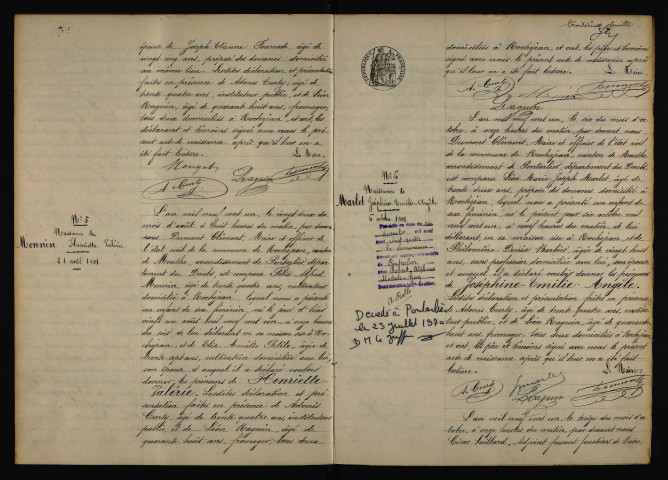 épouse de Joseph Etienne Fourcat, âgé de
vingt cinq ans, préposé des douanes, domicilié
au même lieu. Lesdites déclaration et présentation
faites en présence de Adonis Curty, âgé de
trente quatre ans, instituteur public, et de Léon
Raguin, âgé de quarante huit ans, fromager,
tous deux domiciliés à Rochejean, et ont, les
déclarant et témoins signé avec nous le pré-
sent acte de naissance après qu'il leur en a
été fait lecture. Le Maire
A. Curty Raguin
N° 5
Naissance de
Monnin Henriette Valérie
21 août 1901
L'an mil neuf cent un, le vingt deux du
mois d'août à huit heures du matin, par devant
nous Dumont Clément, Maire et officier de
l'état civil de la commune de Rochejean, canton
de Mouthe, arrondissement de Pontarlier, dépar-
tement du Doubs, est comparu
Monnin, âgé de trente quatre ans, cultivateur
domicilié à Rochejean, lequel nous a présenté
un enfant de sexe féminin, né le jour d'hier
vingt un août mil neuf cent un, à onze heures
du soir, de lui déclarant en sa maison sise à Ro-
chejean, et de
trente sept ans, cultivatrice domiciliée avec lui,
son épouse, et auquel il a déclaré vouloir
donner les prénoms de Henriette
Valérie. Lesdites déclaration et pré-
sentation faites en présence de Adonis
Curty, âgé de trente quatre ans instituteur
public, et de Léon Raguin, âgé de
quarante huit ans, fromager, tous deux
domiciliés à Rochejean, et ont les père et témoins
signé avec nous le présent acte de naissance après
qu'il leur en a été fait lecture. Le Maire
A. Curty Raguin
N° 6
Naissance de
Marlet Joséphine Emilie Angèle
6 octobre 1901
Décédée à Pontarlier
le 23 juillet 1970
L'an mil neuf cent un, le six du mois d'oc-
tobre, à onze heures du matin par devant nous
Dumont Clément, Maire et officier de l'état civil
de la commune de Rochejean, canton de Mouthe
arrondissement de Pontarlier, département du Doubs,
est comparu Léon Marie Joseph Marlet, âgé de
trente deux ans, préposé des douanes domicilié à
Rochejean, lequel nous a présenté un enfant de
sexe féminin, né le présent jour six octobre mil
neuf cent un, à neuf heures du matin, de lui
déclarant en sa maison sise à Rochejean, et de
Philomène âgée de vingt huit
ans, sans profession domiciliée avec lui, son épouse
et auquel il a déclaré vouloir donner les prénoms
de Joséphine Emilie Angèle.
Lesdites déclaration et présentation faites en présence
de Adonis Curty, âgé de trente quatre ans, institu-
teur public, et de Léon Raguin, âgé de quarante huit
ans, fromager, tous deux domiciliés à Rochejean,
et ont, les père et témoins signé avec nous le présent
acte de naissance après qu'il leur en a été fait
lecture. Le Maire
A. Curty Raguin
L'an mil neuf cent un, le treize du mois d'oc-
tobre, à onze heures du matin, par devant nous
César Paillard, Adjoint faisant fonctions de Maire